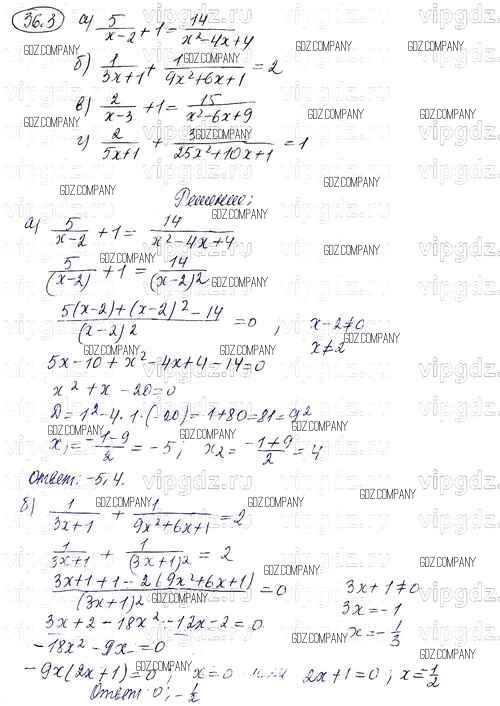 36.3 а) 5/(x-2) + 1 = 14/(x²-4x+4)
б) 1/(3x+1) + 1/(9x²+6x+1) = 2
в) 2/(x-3) + 1 = 15/(x²-6x+9)
г) 2/(5x+1) + 3/(25x²+10x+1) = 1
Решение:
а) 5/(x-2) + 1 = 14/(x²-4x+4)
5/(x-2) + 1 = 14/(x-2)²
(5(x-2)+(x-2)²-14)/(x-2)² = 0 ; x-2≠0
x≠2
5x-10+x²-4x+4-14=0
x²+x-20=0
D=1²-4·1·(-20)=1+80=81=9²
x₁=(-1-9)/2=-5; x₂=(-1+9)/2=4
Ответ: -5, 4.
б) 1/(3x+1) + 1/(9x²+6x+1) = 2
1/(3x+1) + 1/(3x+1)² = 2
(3x+1+1-2(9x²+6x+1))/(3x+1)² = 0 3x+1≠0
3x=-1
x=-1/3
3x+2-18x²-12x-2=0
-18x²-9x=0
-9x(2x+1)=0; x=0 или 2x+1=0; x=-1/2
Ответ: 0; -1/2
vipgdz.ru
GDZ.COMPANY